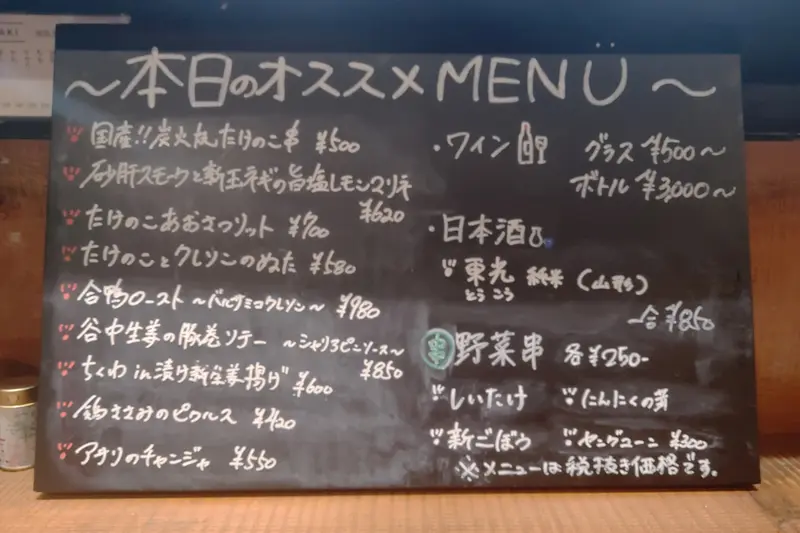 ～本日のオススメMENU～
国産!!炭火丸たけのこ串 ¥500
砂肝スモークと新玉ネギの旨塩レモンマリネ
¥620
たけのこあおさつリット ¥700
たけのことクレソンのぬた ¥580
合鴨ロースト ～バルサミコクレソン～ ¥980
谷中生姜の豚巻ソテー ～シャリアピンソース～
¥850
ちくわin漬け新生姜揚げ ¥600
鶏ささみのピクルス ¥420
アサリのチャンジャ ¥550
・ワイン グラス ¥500～
ボトル ¥3,000～
・日本酒
東光 純米 (山形)
とうこう
一合 ¥850
野菜串 各¥250-
しいたけ にんにくの芽
新ごぼう ヤングコーン ¥300
※メニューは税抜き価格です。